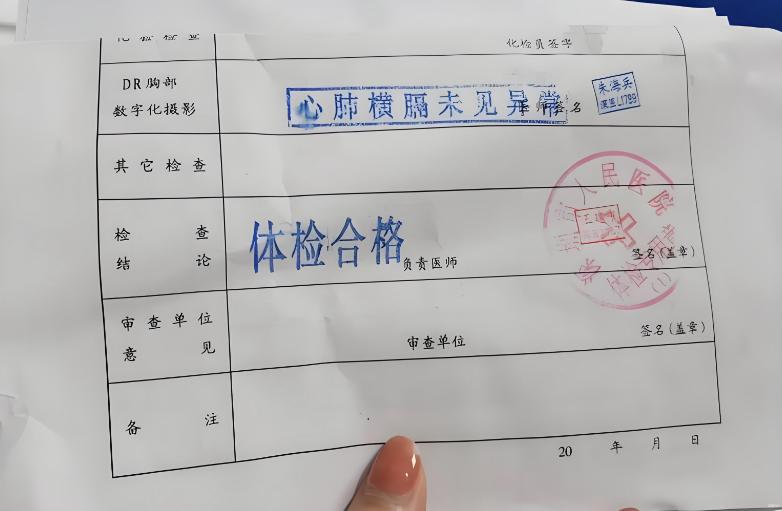 化验检查
化验员签字
DR胸部
数字化摄影
心肺横膈未见异常
医师签名
朱海兵
其它检查
人民医院
检查
结论
体检合格
负责医师
签名(盖章)
(1)
审查单位
意见
审查单位
签名(盖章)
备注
20 年 月 日